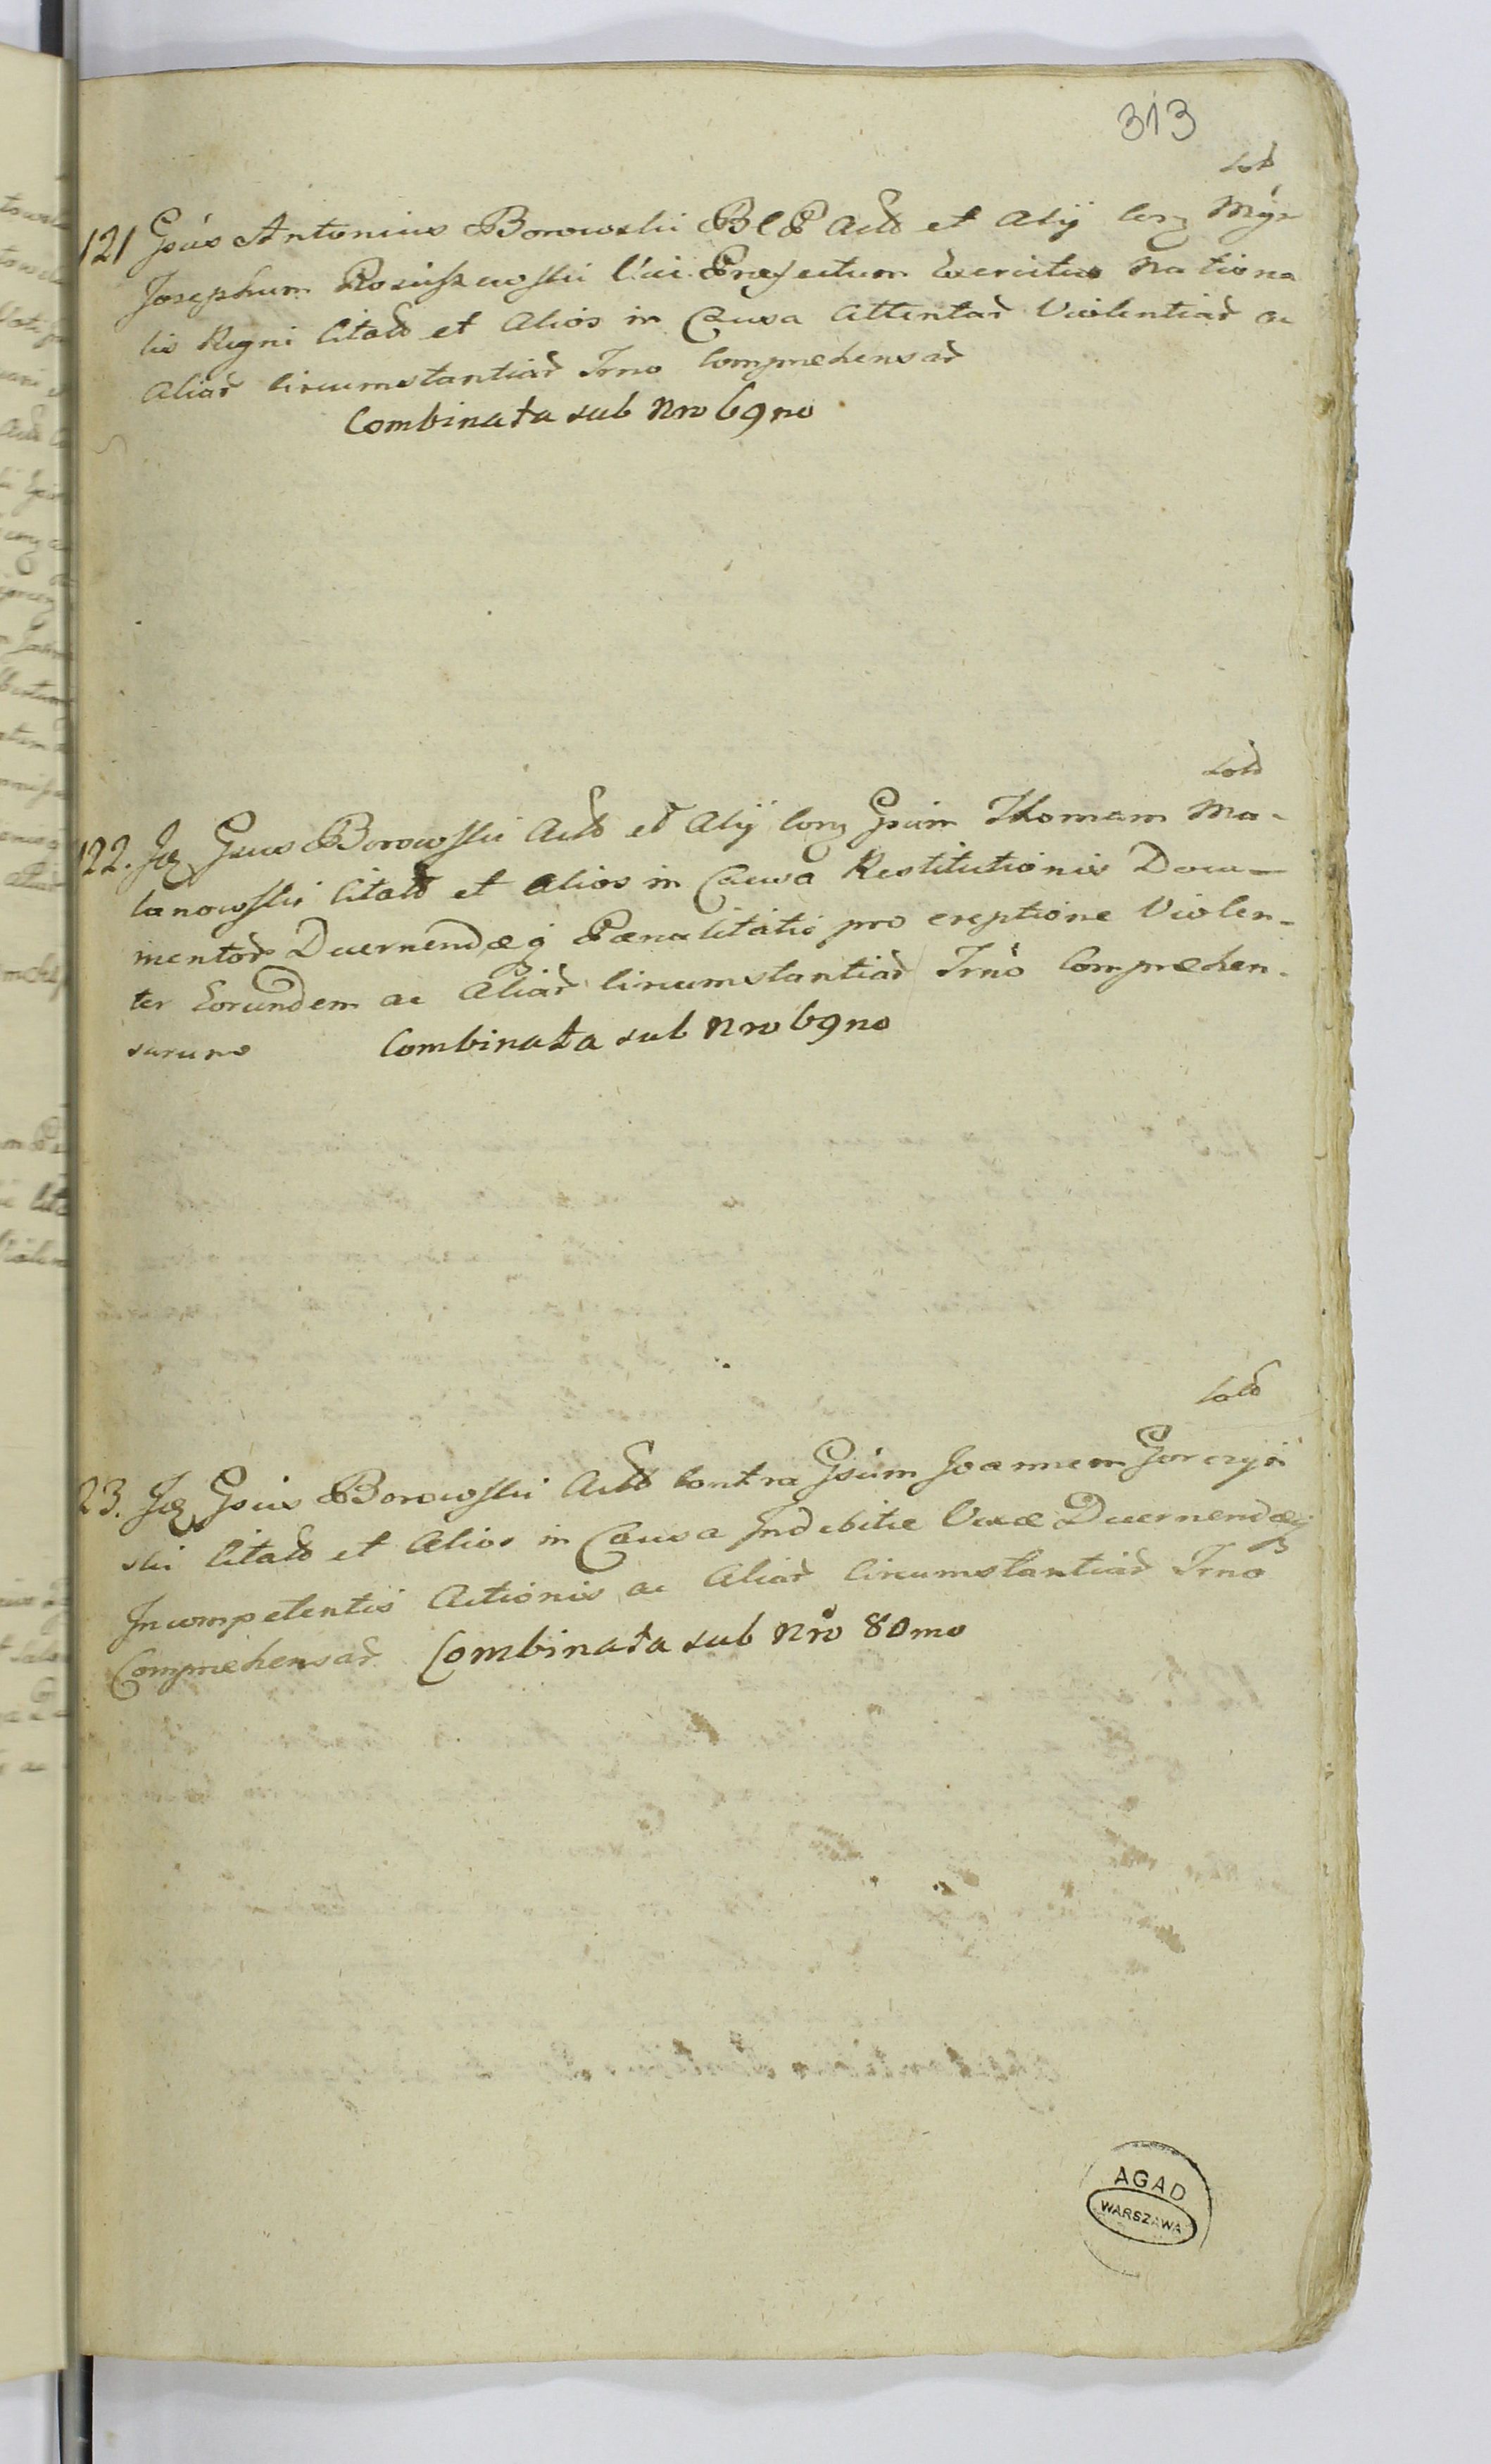 313
Lod
121 Gsus Antonius Borowski B C P Actō et Alÿ Conͣ Mgn
Josephum Rosiuszewski Vici Præfectum Exercitus Nationa
lis Regni Citatō et Alios in Causa Attentar Violentiar ac
Aliar Circumstantiar Trno Compræhensar
Combinata sub Nro 69no
Lod
122. Jd Gsus Borowski Actō et Alÿ Conͣ Gsum Thomam Ma-
lanowski Citatō et Alios in Causa Restitutionis Docu-
mentor Decernendæq Pænalitatis pro ereptione Violen-
ter Eorundem ac Aliar Circumstantiar Trno Compræhen-
sarum Combinata sub Nro 69no
Lod
23. Jd Gsus Borowski Actō Contra Gsum Joannem Gorczyń
ski Citatō et Alios in Causa Indebitæ Vexæ Decernendæq
Incompetentis Actionis ac Aliar Circumstantiar Trno
Compræhensar Combinata sub Nro 80mo
AGAD
WARSZAWA